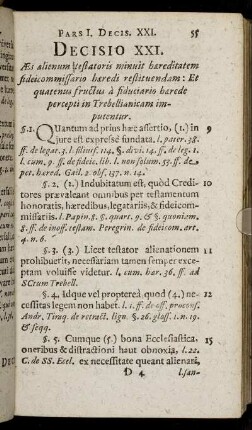 PARS I. DECIS. XXI. 55
DECISIO XXI.
Æs alienum testatoris minuit hæreditatem
fideicommissario hæredi restituendam: Et
quatenus fructus à fiduciario hærede
percepti in Trebellianicam im-
putentur.
§. 1. QUantum ad prius hæc assertio, (1.) in 9
jure est expressè fundata. l. pater. 38.
ff. de legat. 3. l. filiusf. 114. §. divi. 14. ff. de leg. 1.
l. cum. 9. ff. de fideic. lib. l. non solum. 55. ff. de
pet. hæred. Gail. 2. obs. 137. n. 14.
§. 2. (2.) Indubitatum est, quòd Credi- 10
tores prævaleant omnibus per testamentum
honoratis, hæredibus, legatariis, & fideicom-
missariis. l. Papin. 8. §. quart. 9. & §. quoniam.
8. ff. de inoff. testam. Peregrin. de fideicom. art.
4. n. 6.
§. 3. (3.) Licet testator alienationem 11
prohibuerit, necessariam tamen semper exce-
ptam voluisse videtur. l. cum. hær. 36. ff. ad
SCtum Trebell.
§. 4. Idque vel propterea quod (4.) ne- 12
cessitas legem non habet. l. 1. ff. de off. procons.
Andr. Tiraq. de retract. lign. §. 26. gloss. 1. n. 19.
& seqq.
§. 5. Cumque (5.) bona Ecclesiastica, 15
oneribus & distractioni haut obnoxia, l. 22.
C. de SS. Eccl. ex necessitate queant alienari,
D 4 l. san-